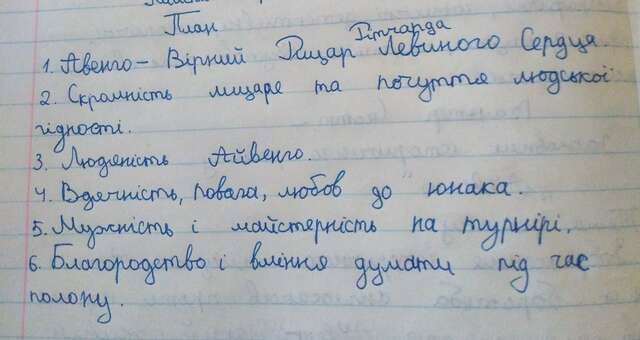 План
Річарда
1. Авенго – Вірний Рицар Левиного Серця.
2. Скромність лицаре та почуття людської
гідності.
3. Людяність Айвенго.
4. Вдячність, повага, любов до юнака.
5. Мужність і майстерність на турнірі.
6. Благородство і вміння думати під час
полону.